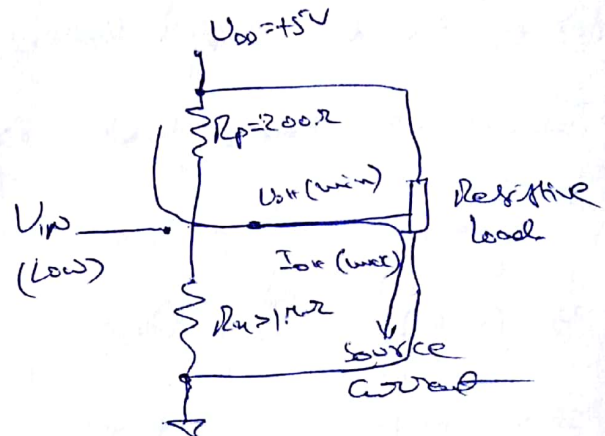 V_DD = +5V
R_p = 200Ω
V_OH (min)
Resistive
Load
V_IN
(Low)
I_OH (max)
R_n > 1MΩ
Source
Current